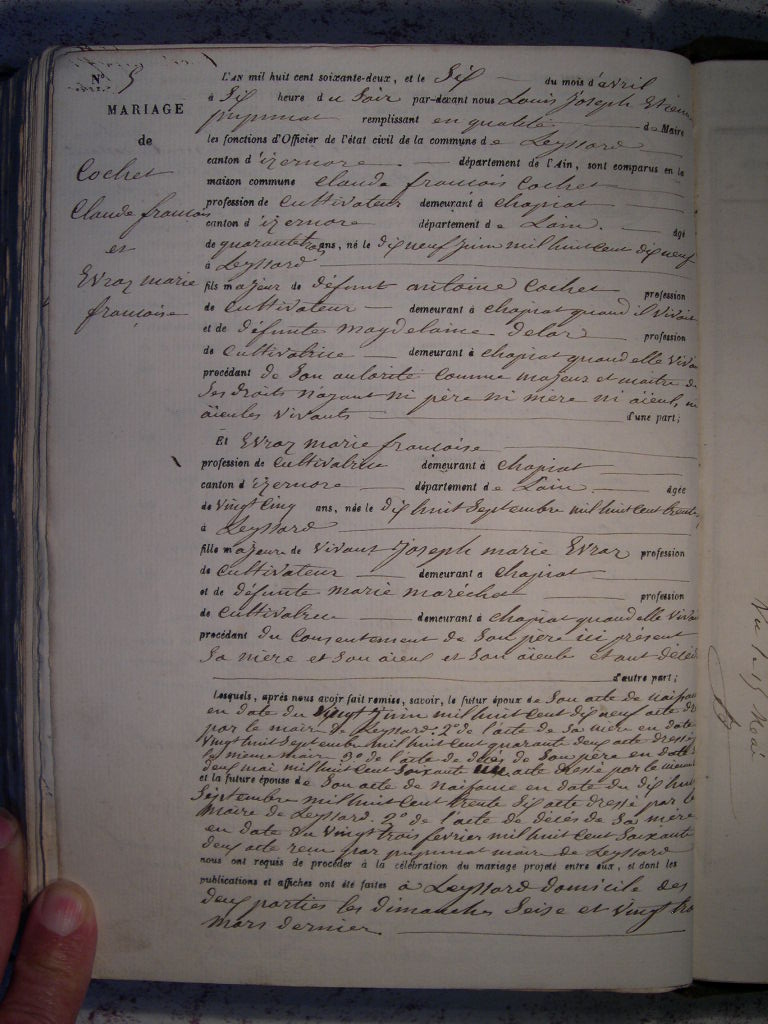 N° 5
MARIAGE
de
Cochet
Claude francois
et
Evraz marie
francoise
L'AN mil huit cent soixante-deux, et le Six du mois d'avril
à Six heure du Soir par-devant nous Louis Joseph Etienne
pupunat remplissant en qualité de Maire
les fonctions d'Officier de l'état civil de la commune de Leyssard
canton d'izernore. département de l'Ain, sont comparus en la
maison commune Claude francois Cochet
profession de Cultivateur demeurant à chapiat
canton d'izernore département de Lain. âgé
de quarante trois ans, né le dix neuf Juin mil huit cent dix neuf
à Leyssard
fils majeur de défunt antoine Cochet profession
de cultivateur demeurant à chapiat quand il vivait
et de défunte magdelaine delor profession
de Cultivatrice demeurant à chapiat quand elle viva
procédant de Son autorité comme majeur et maitre de
Ses droits n'ayant ni père ni mère ni aïeul, ni
aïeules vivants d'une part;
Et Evraz marie francoise
profession de Cultivatrice demeurant à Chapiat
canton d'izernore département de Lain. âgée
de Vingt Cinq ans, née le dix huit Septembre mil huit cent trente
à Leyssard
fille majeure de vivant Joseph marie Evraz profession
de Cultivateur demeurant à Chapiat
et de défunte marie maréchal profession
de Cultivatrice demeurant à chapiat quand elle viva
procédant du Consentement de Son père ici présent
Sa mère et Son aïeul et Son aïeule étant décéd
d'autre part;
Lesquels, après nous avoir fait remise, savoir, le futur époux de Son acte de naissance
en date du vingt Juin mil huit cent dix neuf acte dr
par le maire de Leyssard. 2° de l'acte de Sa mère en date
Vingt huit Septembre mil huit cent quarante deux acte dressé
le meme maire 3° de l'acte de décès de Son père en date
deux mai mil huit cent Soixante un acte dressé par le meme
et la future épouse de Son acte de naissance en date du dix huit
Septembre mil huit cent trente Six acte dressé par le
maire de Leyssard. 2° de l'acte de décès de Sa mère
en date du Vingt trois fevrier mil huit cent Soixante
deux acte recu par pupunat maire de Leyssard
nous ont requis de procéder à la célébration du mariage projeté entre eux, et dont les
publications et affiches ont été faites à Leyssard domicile des
deux parties les dimanches Seise et Vingt tro
mars dernier.
Vu le 15 Mai